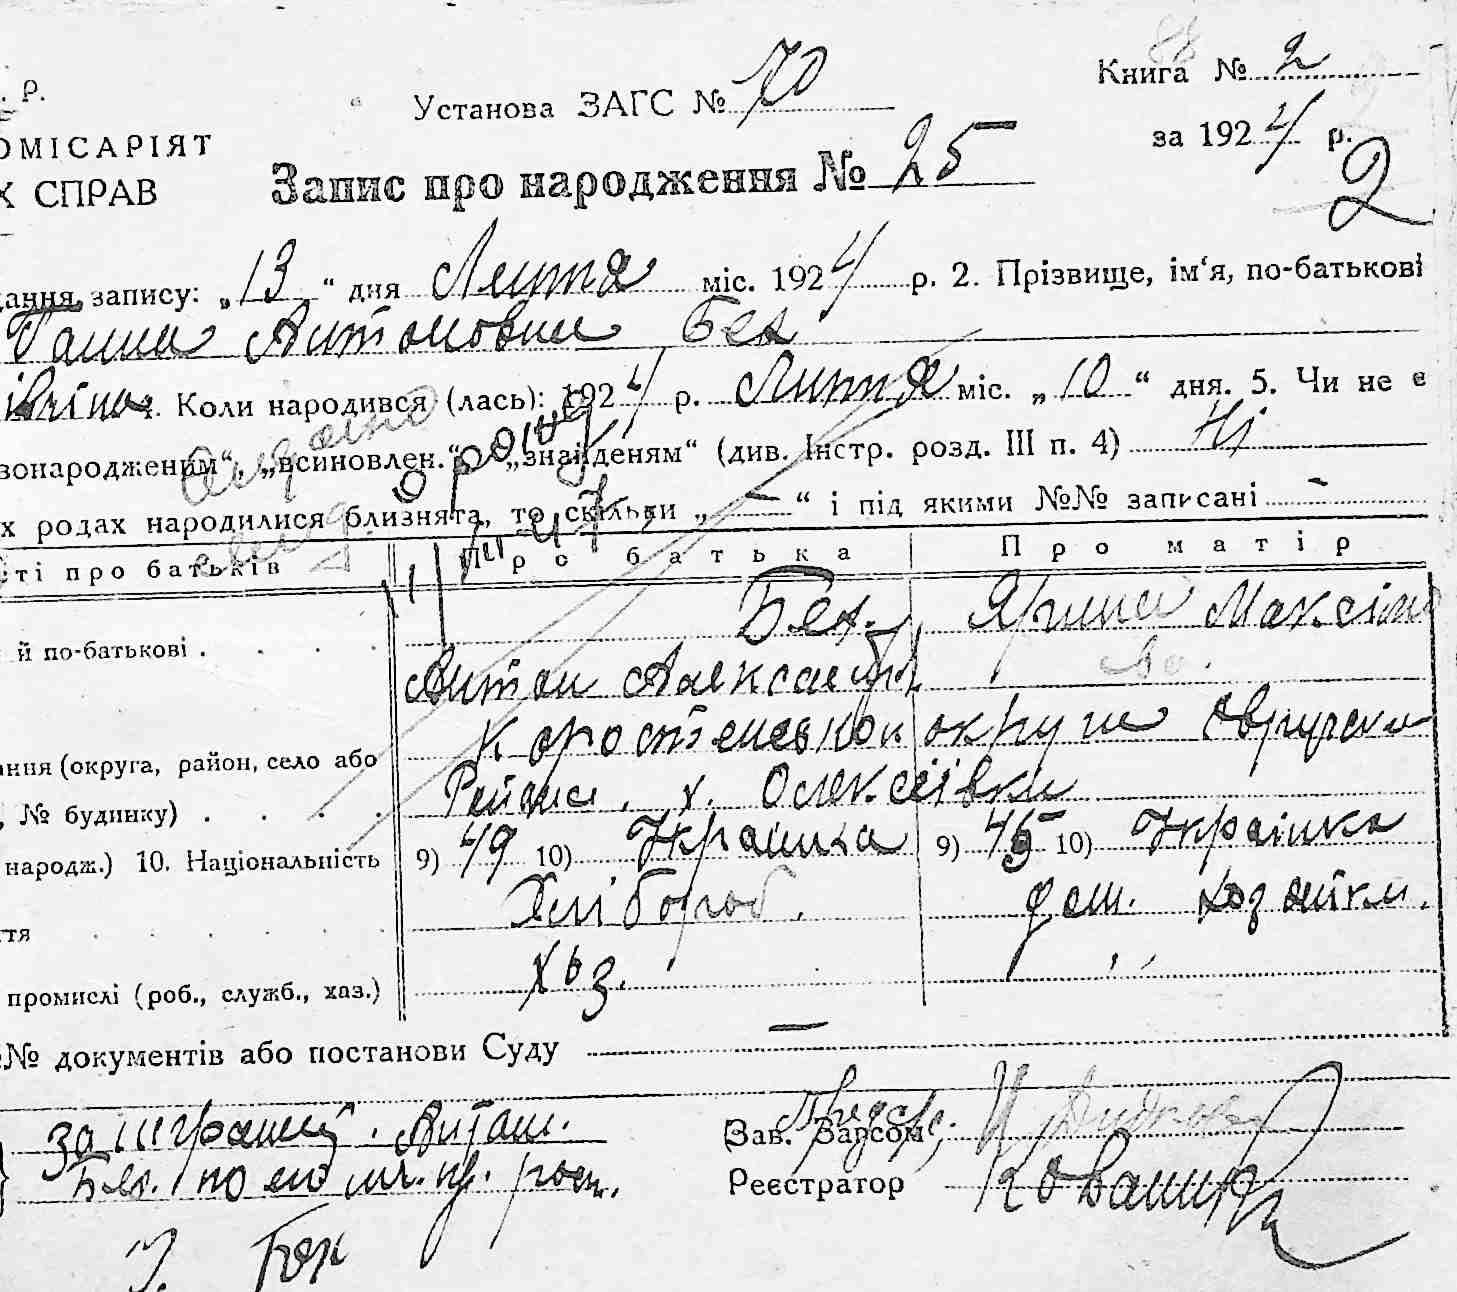 Книга № 2
. Р.
Установа ЗАГС № 70
ОМІСАРІЯТ
за 1924 р.
Х СПРАВ
Запис про народження № 25
2
дання запису: „13“ дня Лютня міс. 1924 р. 2. Прізвище, ім‘я, по-батькові
Ганна Антоновна Бех
Коли народився (лась): 1924 р. Лютня міс. „10“ дня. 5. Чи не є
вонародженим“, „всиновлен.“, „знайденям“ (див. Інстр. розд. III п. 4) Ні
х родах народилися близнята, то скільки „—“ і під якими №№ записані —
ті про батьків Про батька Про матір
Бех. Ярина Максім
й по-батькові .
Антон Александр
Коростенськой округи Овруцкаго
ння (округа, район, село або
Району. х. Олексіївка
, № будинку) .
народж.) 10. Національність 9) 49 10) Українка 9) 45 10) Українка
Хлібороб. дом. хозяйка.
ття
хоз. ,,
промислі (роб., служб., хаз.)
№№ документів або постанови Суду —
Зав. Загсом
Бех. по его
Реєстратор
Бех